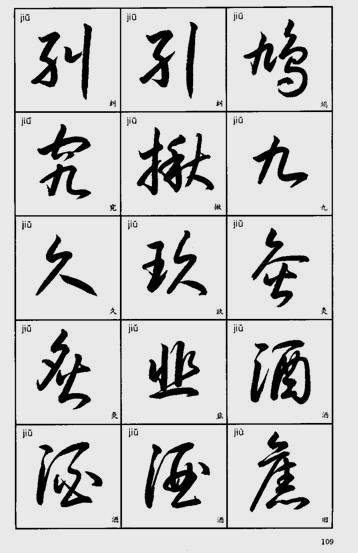 jiū jiū jiū
糾 糾 鳩
纠 纠 鸠
jiū jiū jiǔ
究 揪 九
究 揪 九
jiǔ jiǔ jiǔ
久 玖 灸
久 玖 灸
jiǔ jiǔ jiǔ
灸 韭 酒
灸 韭 酒
jiǔ jiǔ jiù
酒 酒 舊
酒 酒 旧
109